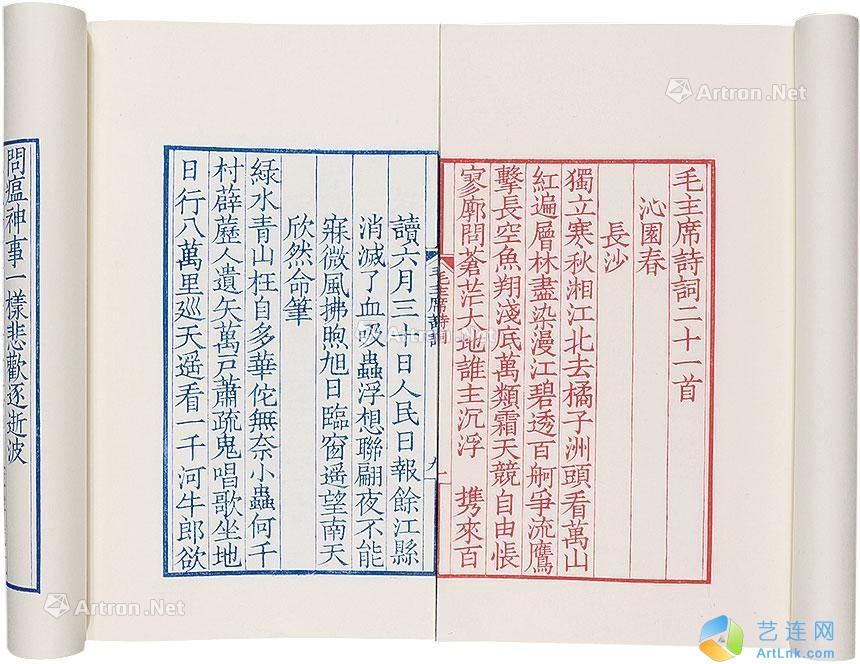 毛主席詩詞二十一首
沁園春
長沙
獨立寒秋湘江北去橘子洲頭看萬山
紅遍層林盡染漫江碧透百舸爭流鷹
擊長空魚翔淺底萬類霜天競自由悵
寥廓問蒼茫大地誰主沉浮　携來百
毛主席詩詞
一
毛主席詩詞
九
讀六月三十日人民日報餘江縣
消滅了血吸蟲浮想聯翩夜不能
寐微風拂煦旭日臨窗遥望南天
欣然命筆
綠水青山枉自多華佗無奈小蟲何千
村薜藶人遺矢萬戸蕭疏鬼唱歌坐地
日行八萬里廵天遥看一千河牛郎欲
問瘟神事一樣悲歡逐逝波
Artron.Net
Artron.Net
Artron.Net
艺连网
ArtLnk.com